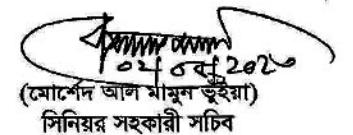 (মোর্শেদ আল মামুন ভূইয়া)
সিনিয়র সহকারী সচিব